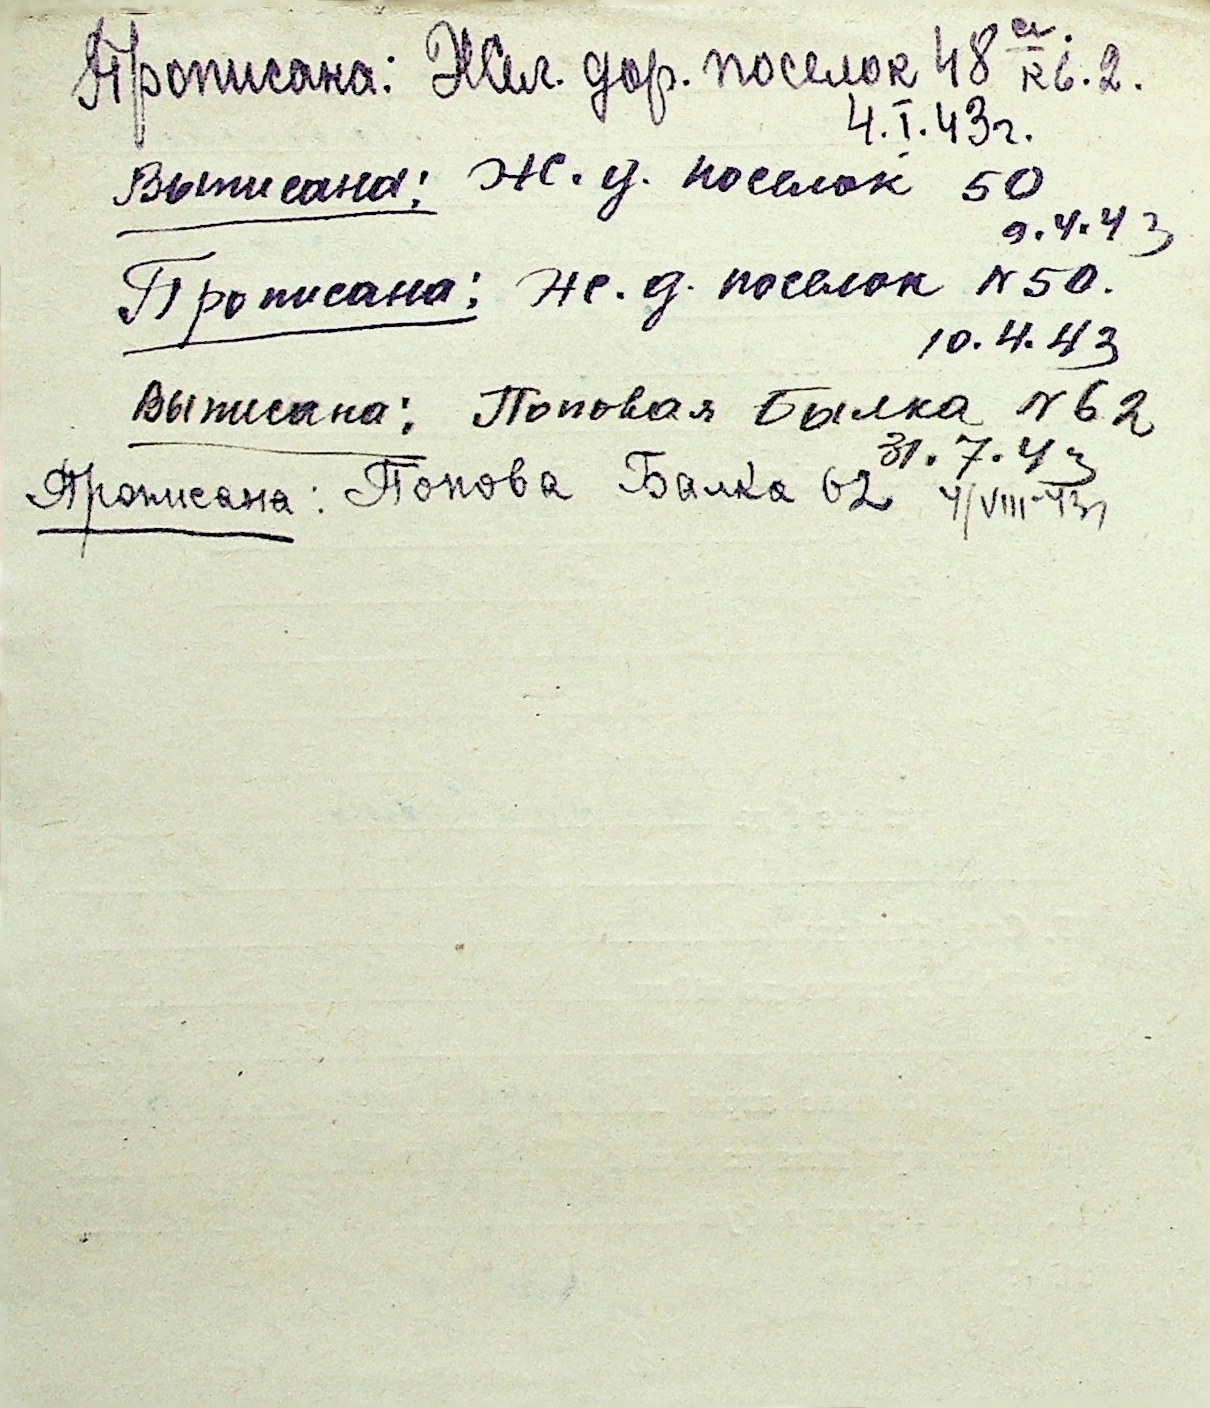 Прописана: Жел. дор. поселок 48 а кв. 2.
4.I.43г.
Выписана: Ж. д. поселок 50
9.4.43
Прописана: Ж. д. поселок N 50.
10.4.43
Выписана: Поповая Былка N 62
31.7.43
Прописана: Попова Балка 62 4/VIII-43г